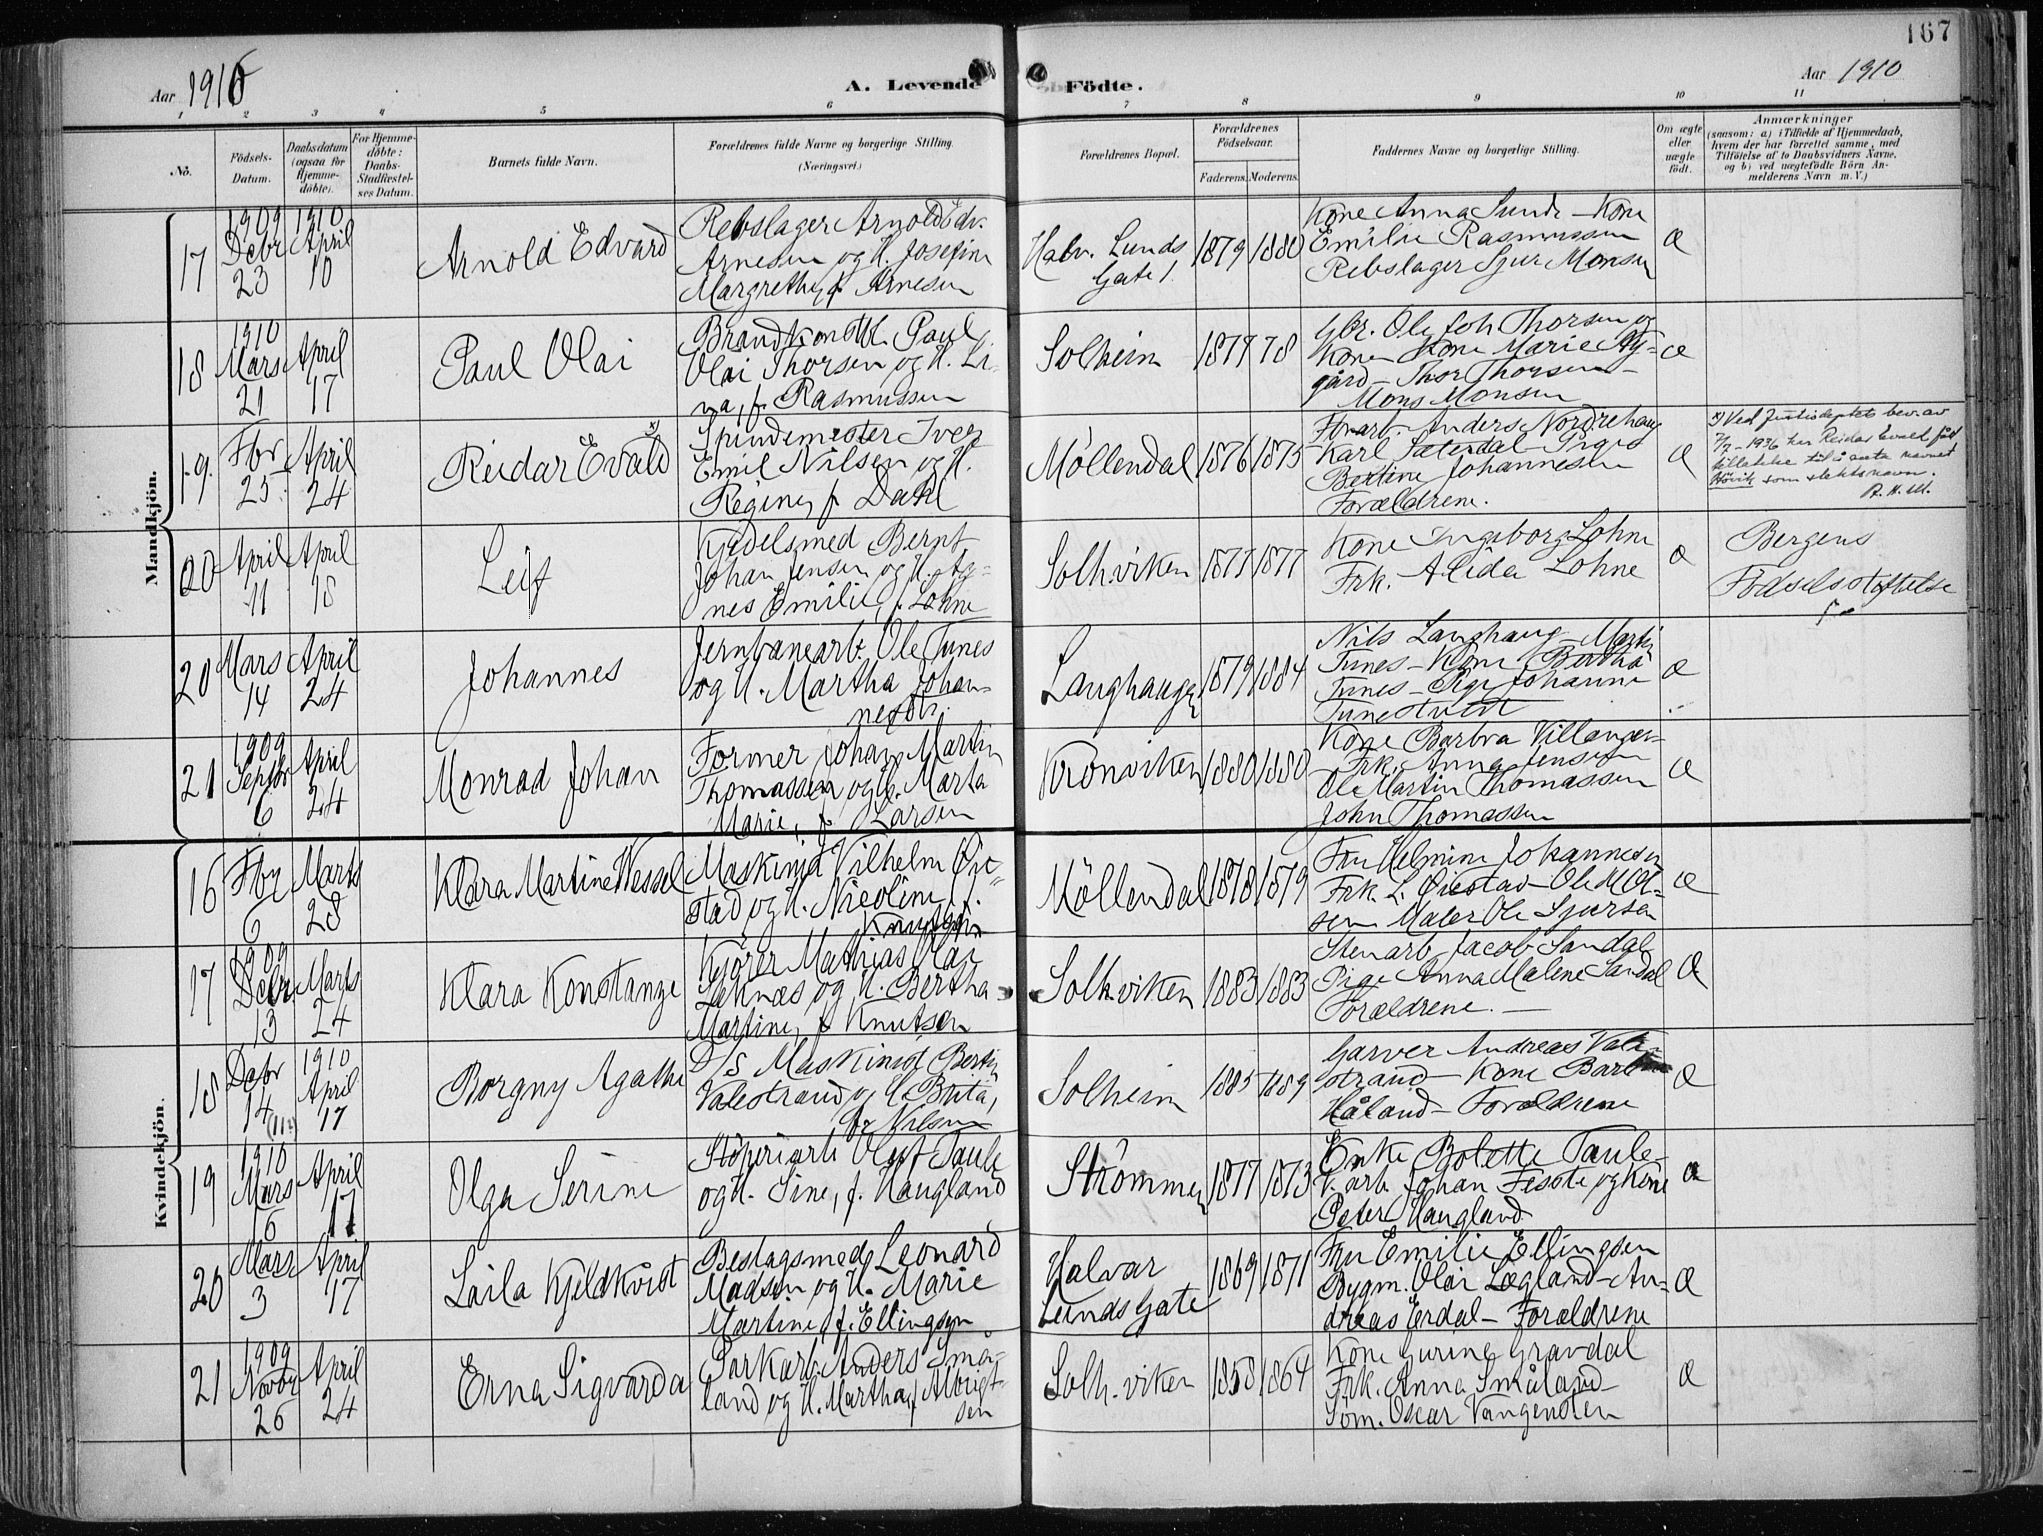 167
Aar 1910
A. Levende Födte.
Aar 1910
1 2 3 4 5 6 7 8 9 10 11
No.
Födsels-
Datum.
Daabsdatum
(ogsaa for
Hjemme-
döbte).
For Hjemme-
döbte:
Daabs-
Stadfæstel-
ses Datum.
Barnets fulde Navn.
Forældrenes fulde Navne og borgerlige Stilling.
(Næringsvei.)
Forældrenes Bopæl.
Forældrenes
Födselsaar.
Faderens. Moderens.
Faddernes Navne og borgerlige Stilling.
Om ægte
eller
uægte
födt.
Anmærkninger
(saasom: a) i Tilfælde af Hjemmedaab,
hvem der har forrettet samme, med
Tilföielse af to Daabsvidners Navne,
og b) ved uægtefödte Börn An-
melderens Navn m. V.)
Mandkjön.
17
1909
Debr
23
1910
April
10
Arnold Edvard
Rebslager Arnold Edv.
Arnesen og H. Josefine
Margrethe, f. Arnesen
Halv. Lunds
Gate 1.
1879 1880
Kone Anna Sunde – Kone
Emilie Rasmussen
Rebslager Sjur Monsen
Æ
18
1910
Mars
21
April
17
Paul Olai
Brandkonst. Paul
Olai Thorsen og H. Li-
na, f. Rasmussen
Solheim
1877 78
Gbr. Ole Joh Thorsen og
Kone Kone Marie Ny-
gård – Thor Thorsen –
Mons Monsen
Æ
19.
Fbr
25
April
24
Reidar Evald x)
Spindemester Iver
Emil Nilsen og H.
Regine, f. Dahl
Möllendal
1876 1875
Fbrarb. Anders Nordrehaug
Karl Sæterdal – Pige
Bertine Johannesen
Forældrene.
Æ
x) Ved Justisdeptets bev. av
7/7 – 1936 har Reidar Evald fått
tillatelse til å anta navnet
Hövik som slektsnavn.
20
April
11
April
18
Leif
Kjedelsmed Bernt
Johan Jensen og H. Ag-
nes Emilie, f. Lohne
Solh.viken
1877 1877
Kone Ingeborg Lohne
Frk. Alida Lohne
Æ
Bergens
Födselsstiftelse
20
Mars
14
April
24
Johannes
Jernbanearb. Ole Tunes
og H. Martha Johan-
nesdtr.
Langhaugen
1879 1884
Nils Langhaug – Martin
Tunes – Kone Bertha
Tunes – Pige Johanne
Tunestveit
Æ
21
1909
Septbr
6
April
24
Monrad Johan
Former Johan Martin
Thomassen og H. Marta
Marie, f. Larsen
Kronviken
1880 1880
Kone Barbra Villanger –
Frk. Anna Jensen
Ole Martin Thomassen
John Thomassen
Æ
Kvindekjön.
16
Fbr
6
Marts
28
Klara Martine Wessel
Maskinist Vilhelm Öie-
stad og H. Nicoline, f.
Knutsen
Möllendal
1878 1879
Fru Helmine Johannesen
Frk. L. Öiestad – Ole M Ol-
sen Maler Ole Sjursen
Æ
17
1909
Debr
13
Marts
24
Klara Konstanze
Kjörer Mathias Olai
Saknæs og H. Bertha
Martine, f. Knutsen
Solh.viken
1883 1883
Stenarb. Jacob Sandal
Pige Anna Malene Sandal
Forældrene. –
Æ
18
Debr
14
1910
April
17
Borgny Agathe
D/S Maskinist Bertin
Valestrand og H Brita,
f. Nilsen
Solheim
1885 1889
Garver Andreas Vale-
strand – Kone Barbra
Håland – Forældrene
Æ
19
1910
Mars
16
April
17
Olga Serine
Stöperiarb. Oluf Taule
og H. Sine, f. Haugland
Strömmen
1877 1873
Enke Bolette Taule –
F.arb. Johan Feste og Kone
Peter Haugland
Æ
20
Mars
3
April
17
Laila Kjeldkvist
Beslagsmed Leonard
Madsen og H. Marie
Martine, f. Ellingsen
Halvar
Lunds Gate
1869 1871
Fru Emilie Ellingsen
Bygm. Olai Lægland – An-
dreas Erdal – Forældrene
Æ
21
1909
Novbr
26
April
24
Erna Sigvarda
Parkarb. Anders Små-
land og H. Martha, f. Albrigt-
sen
Solh.viken
1858 1864
Kone Gurine Gravdal
Frk. Anna Småland –
Söm. Oscar Vangensten
Æ